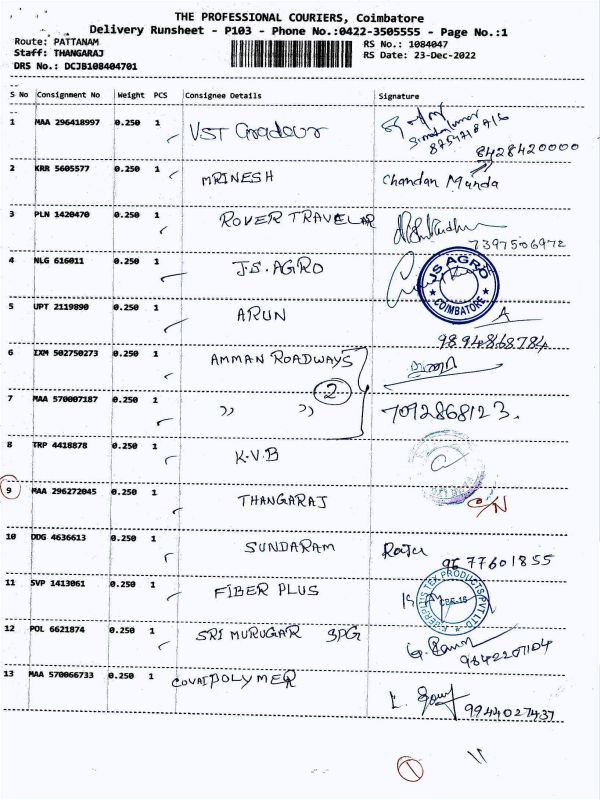 THE PROFESSIONAL COURIERS, Coimbatore
Delivery Runsheet - P103 - Phone No.:0422-3505555 - Page No.:1
Route: PATTANAM
RS No.: 1084047
Staff: THANGARAJ
RS Date: 23-Dec-2022
DRS No.: DCJB108404701
S No Consignment No Weight PCS Consignee Details Signature
1 MAA 296418997 0.250 1 VST
8754718716
8428420000
2 KRR 5605577 0.250 1 MRINESH Chandan Manda
3 PLN 1420470 0.250 1 ROVER TRAVELAR
7397506972
4 NLG 616011 0.250 1 J.S. AGRO JS AGRO ★ COIMBATORE ★
5 UPT 2119890 0.250 1 ARUN A
9894868784
6 IXM 502750273 0.250 1 AMMAN ROADWAYS
2
7 MAA 570007187 0.250 1 " " 7092868123.
8 TRP 4418878 0.250 1 K.V.B
9 MAA 296272045 0.250 1 THANGARAJ C/N
10 DDG 4636613 0.250 1 SUNDARAM Raja
9677601855
11 SVP 1413061 0.250 1 FIBER PLUS TEX PRODUCTS PVT LTD
12 POL 6621874 0.250 1 SRI MURUGAR SPG
9842207104
13 MAA 570066733 0.250 1 COVAIPOLYMER
9944027437
1 11